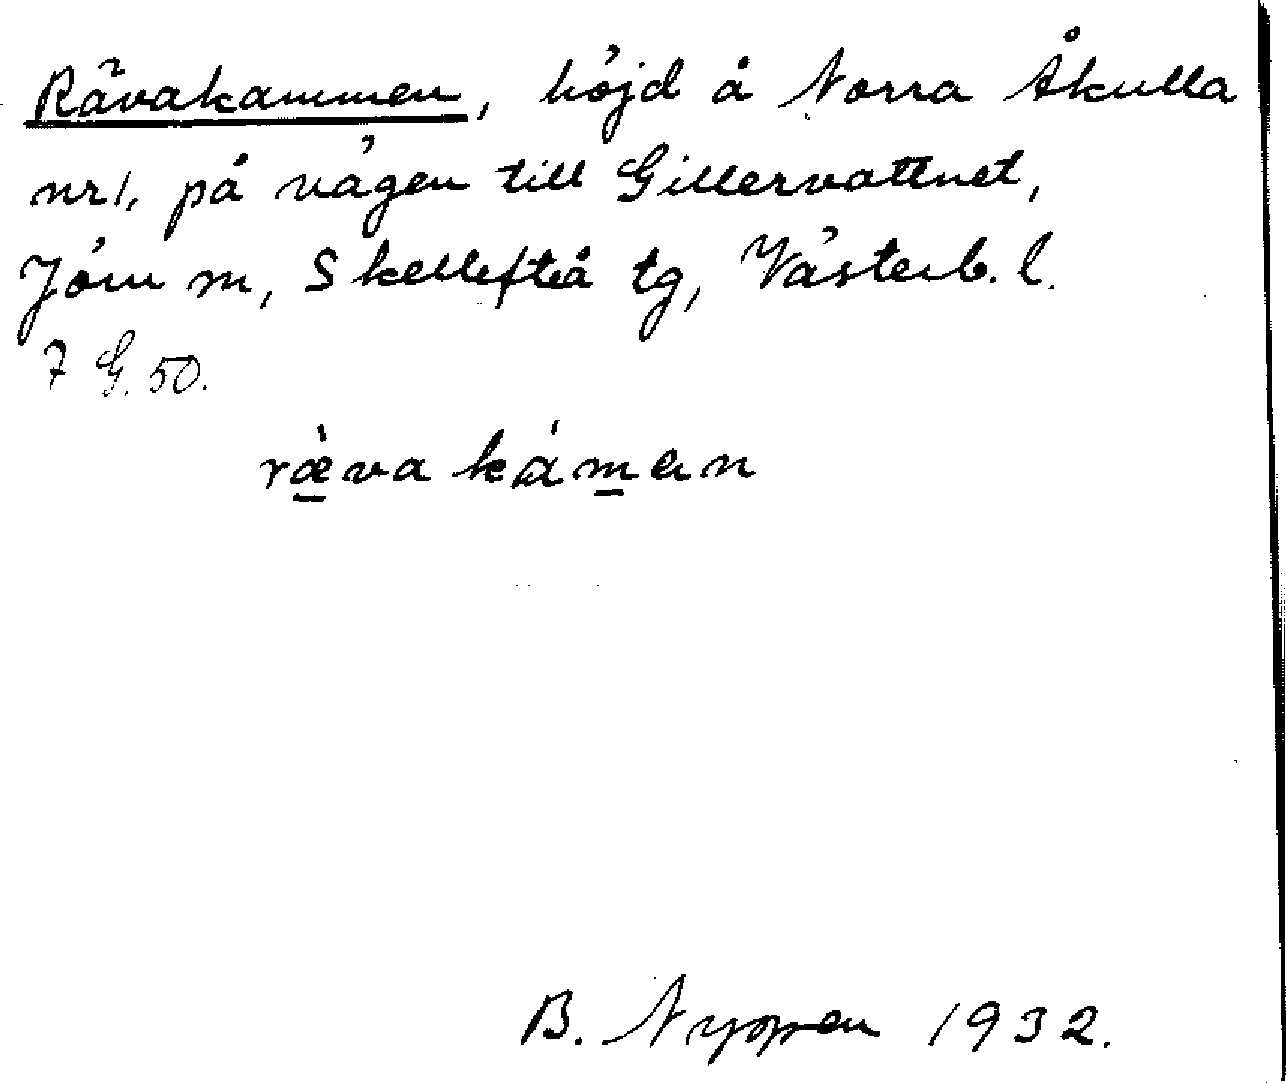 Rävakammen, höjd å Norra Åkulla
nr 1, på vägen till Gillervattnet,
Jörn sn, Skellefteå tg, Västerb. l.
7 G. 50.
ræ̀va kámen
B. Nyppen 1932.